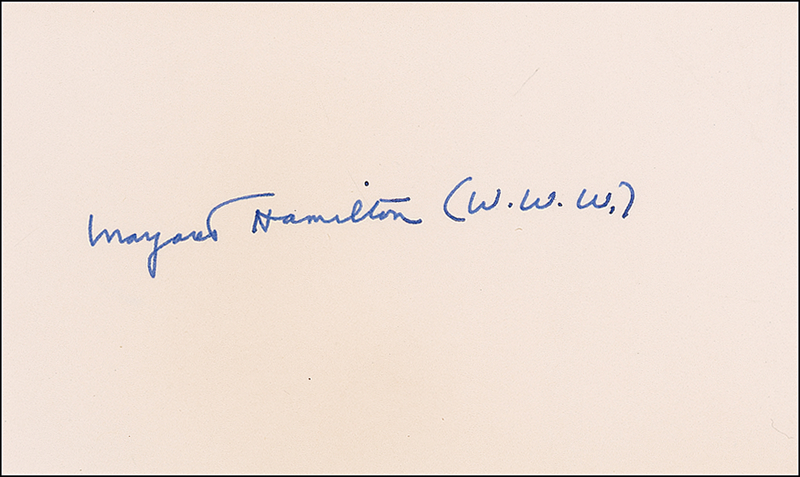 Margaret Hamilton (W.W.W.)